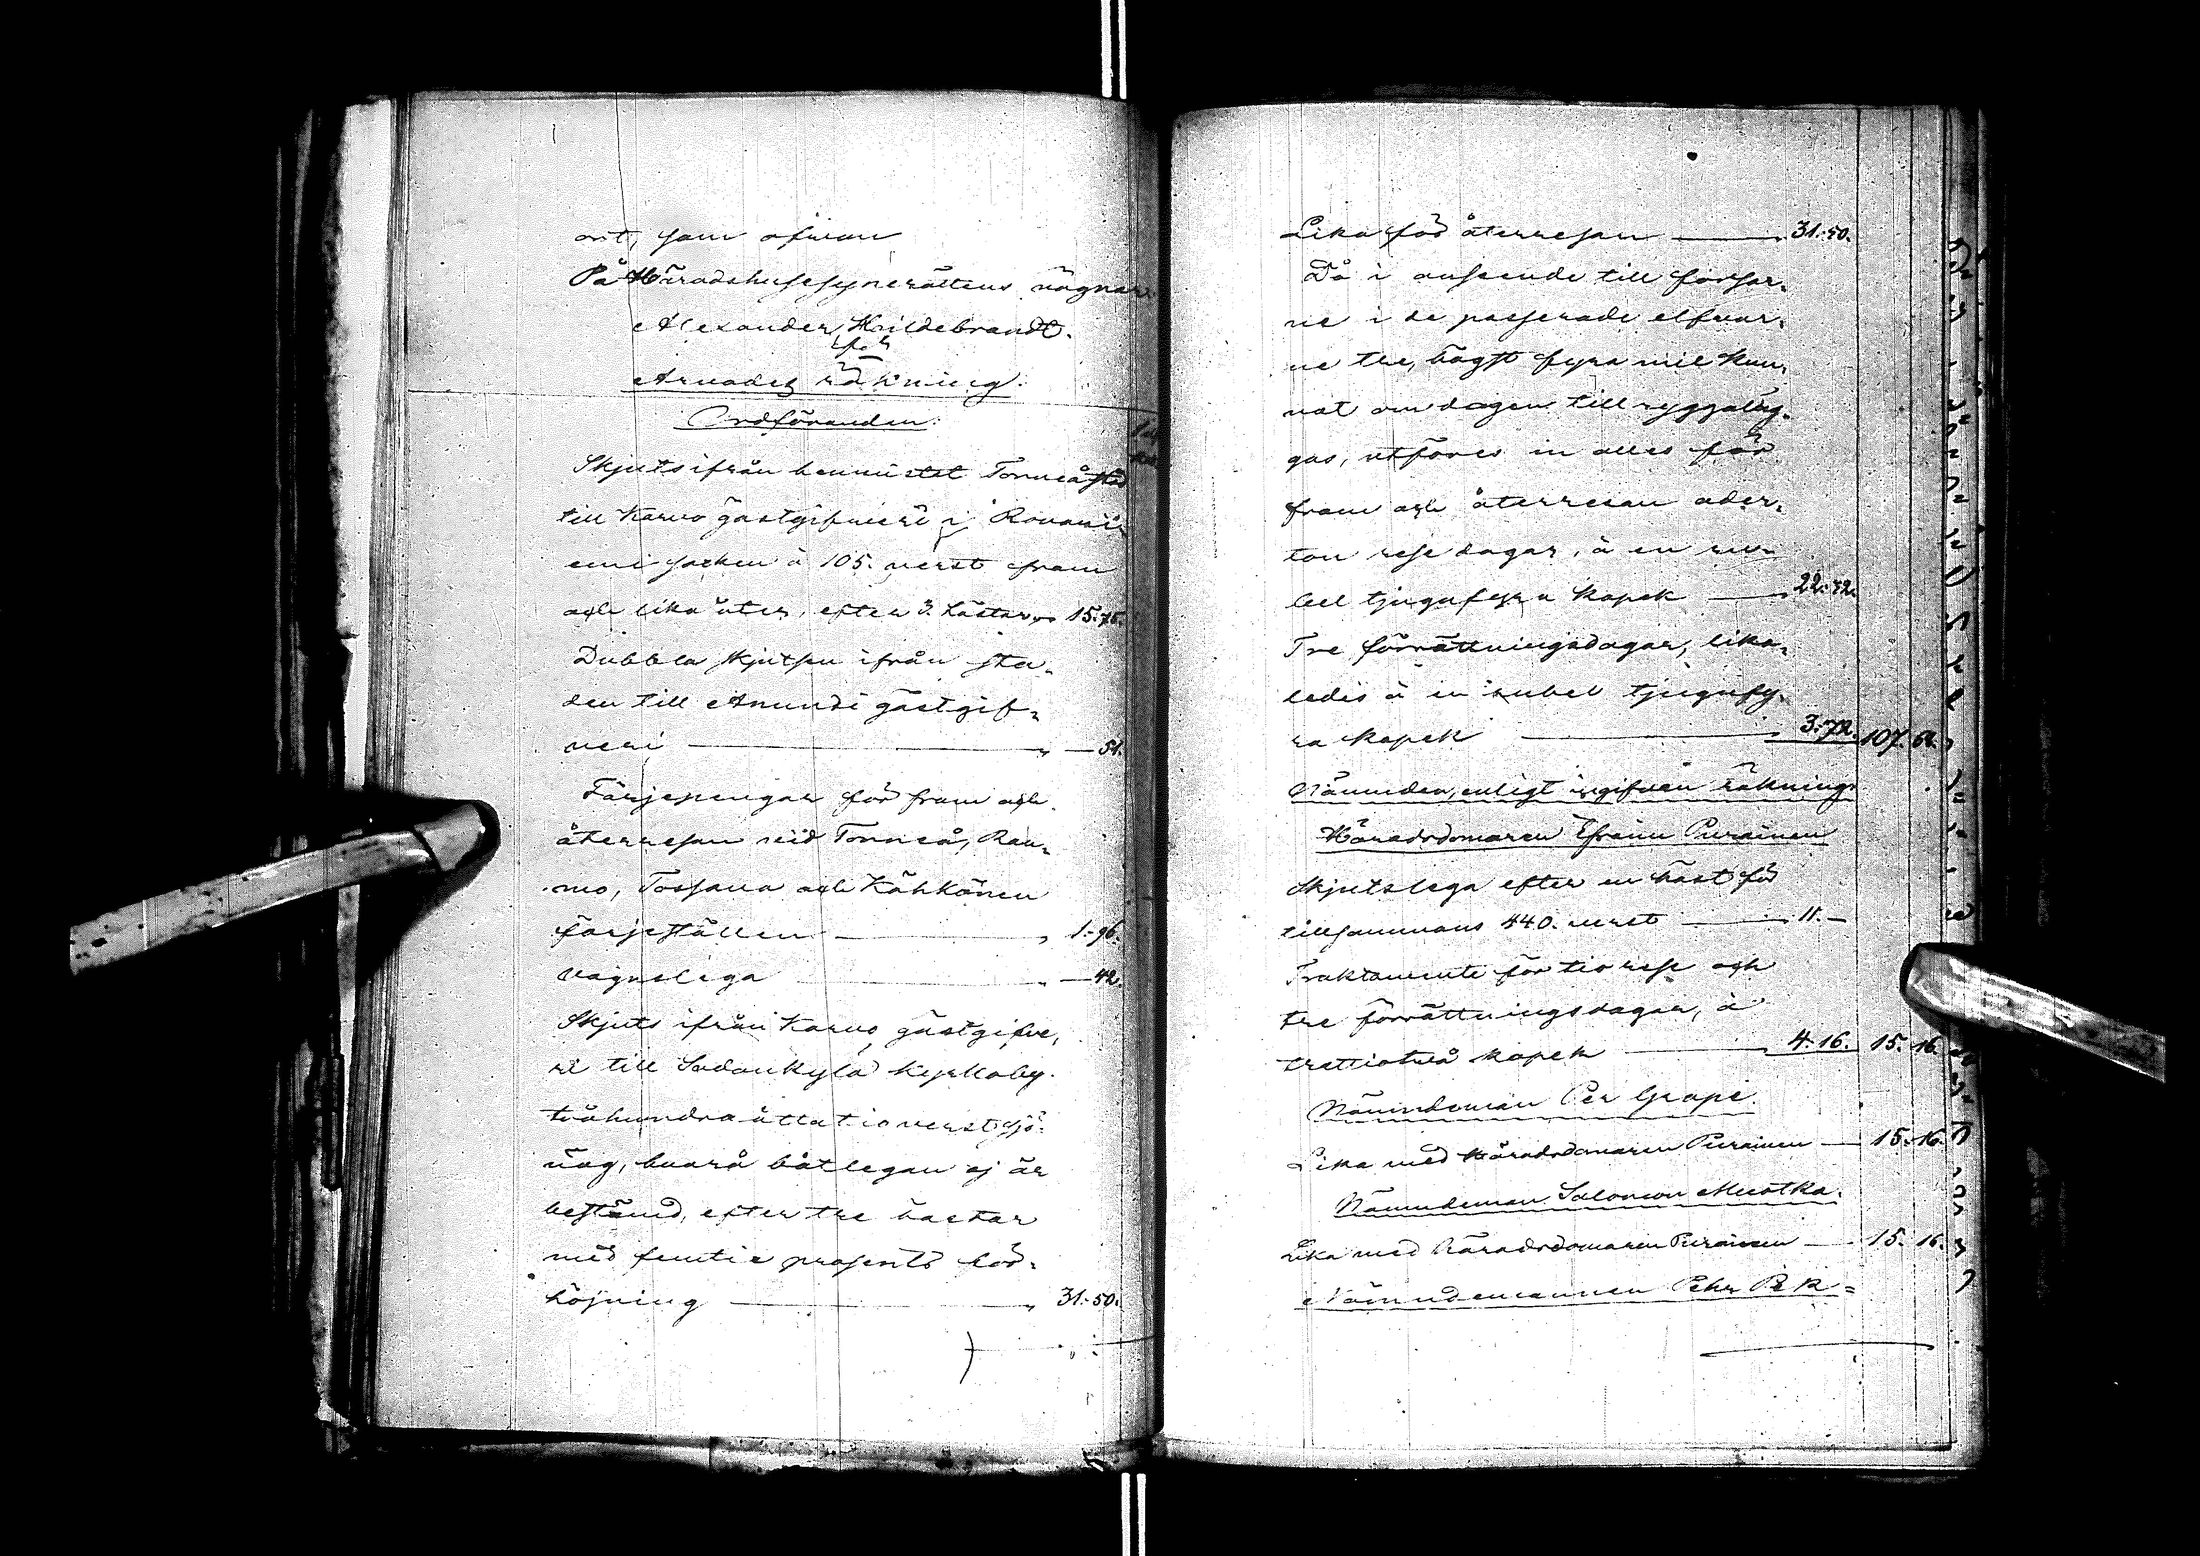 ort, som ofvan
På Häradshusesynerättens vägnar
Alexander Hildebrandt.
för
Arvodes räkning.
Ordföranden:
Skjuts ifrån hemmet Torneå stad
till Karvo gästgifveri i Rovani
emi socken à 105. verst fram
och lika åter, efter 3. hästar 15.75.
Dubbla skjutsen ifrån sta-
den till Anundi gästgif-
veri — 54.
Färjepengar för fram och
återresan vid Torneå, Rau-
mo, Tossava och Kähkönen
färjeställen 1.96.
Vagnslega — 42.
Skjuts ifrån Karvo gästgifve-
ri till Sodankylä kyrkoby
tvåhundra åttatio verst sjö-
väg, hvarå båtlegan ej är
bestämd, efter tre hästar
med femtio prosents för-
höjning 31.50.
Lika för återresan 31.50.
Då i anseende till forsar-
ne i de passerade elfvar-
ne tre, högst fyra mil kun-
nat om dagen tillryggaläg-
gas, utföres in alles för
fram och återresan ader-
ton rese dagar, à en ru-
bel tjugufyra kopek 22.32.
Tre förrättningsdagar, lika-
ledes à en rubel tjugufy-
ra kopek 3.72. 107.61.
Nämnden, enligt ingifven räkning.
Häradsdomaren Efraim Purainen
Skjutslega efter en häst för
tillsammans 440. verst 11. —
Traktamente för tio rese och
tre förrättningsdagar, à
trettiotvå kopek 4.16. 15.16.
Nämndeman Per Grape.
Lika med Häradsdomaren Purainen 15.16.
Nämndeman Salomon Muotka.
Lika med Häradsdomaren Purainen 15.16.
Nämndemannen Pehr